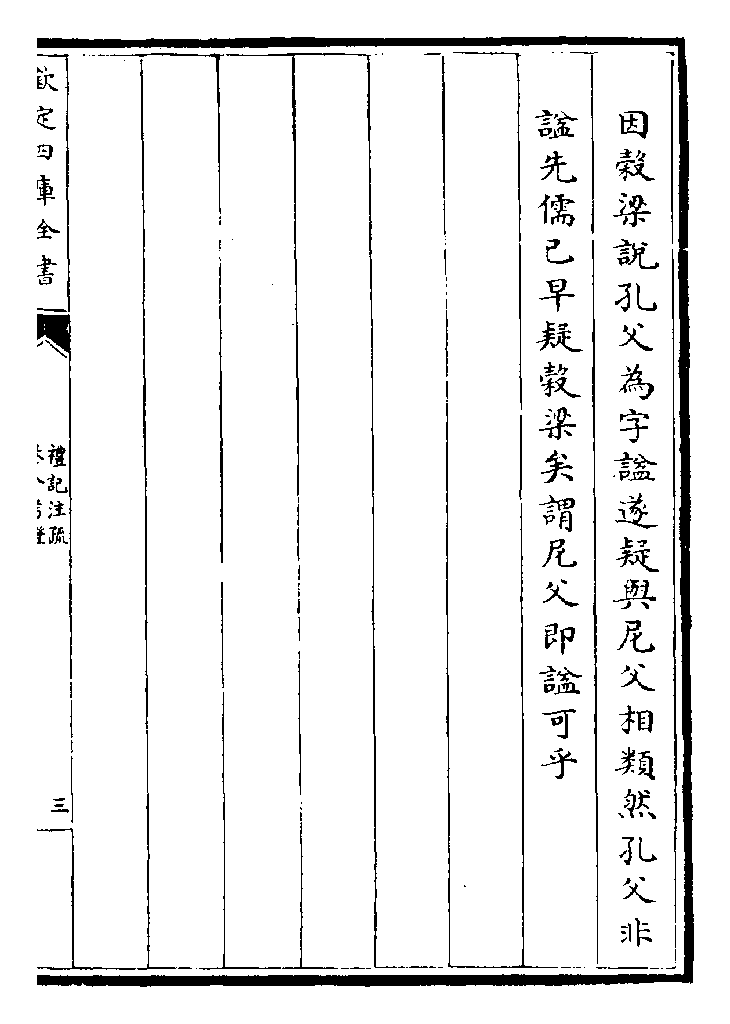 因穀梁說孔父為字諡遂疑與尼父相類然孔父非
諡先儒已早疑穀梁矣謂尼父即諡可乎
欽定四庫全書
禮記注疏
三